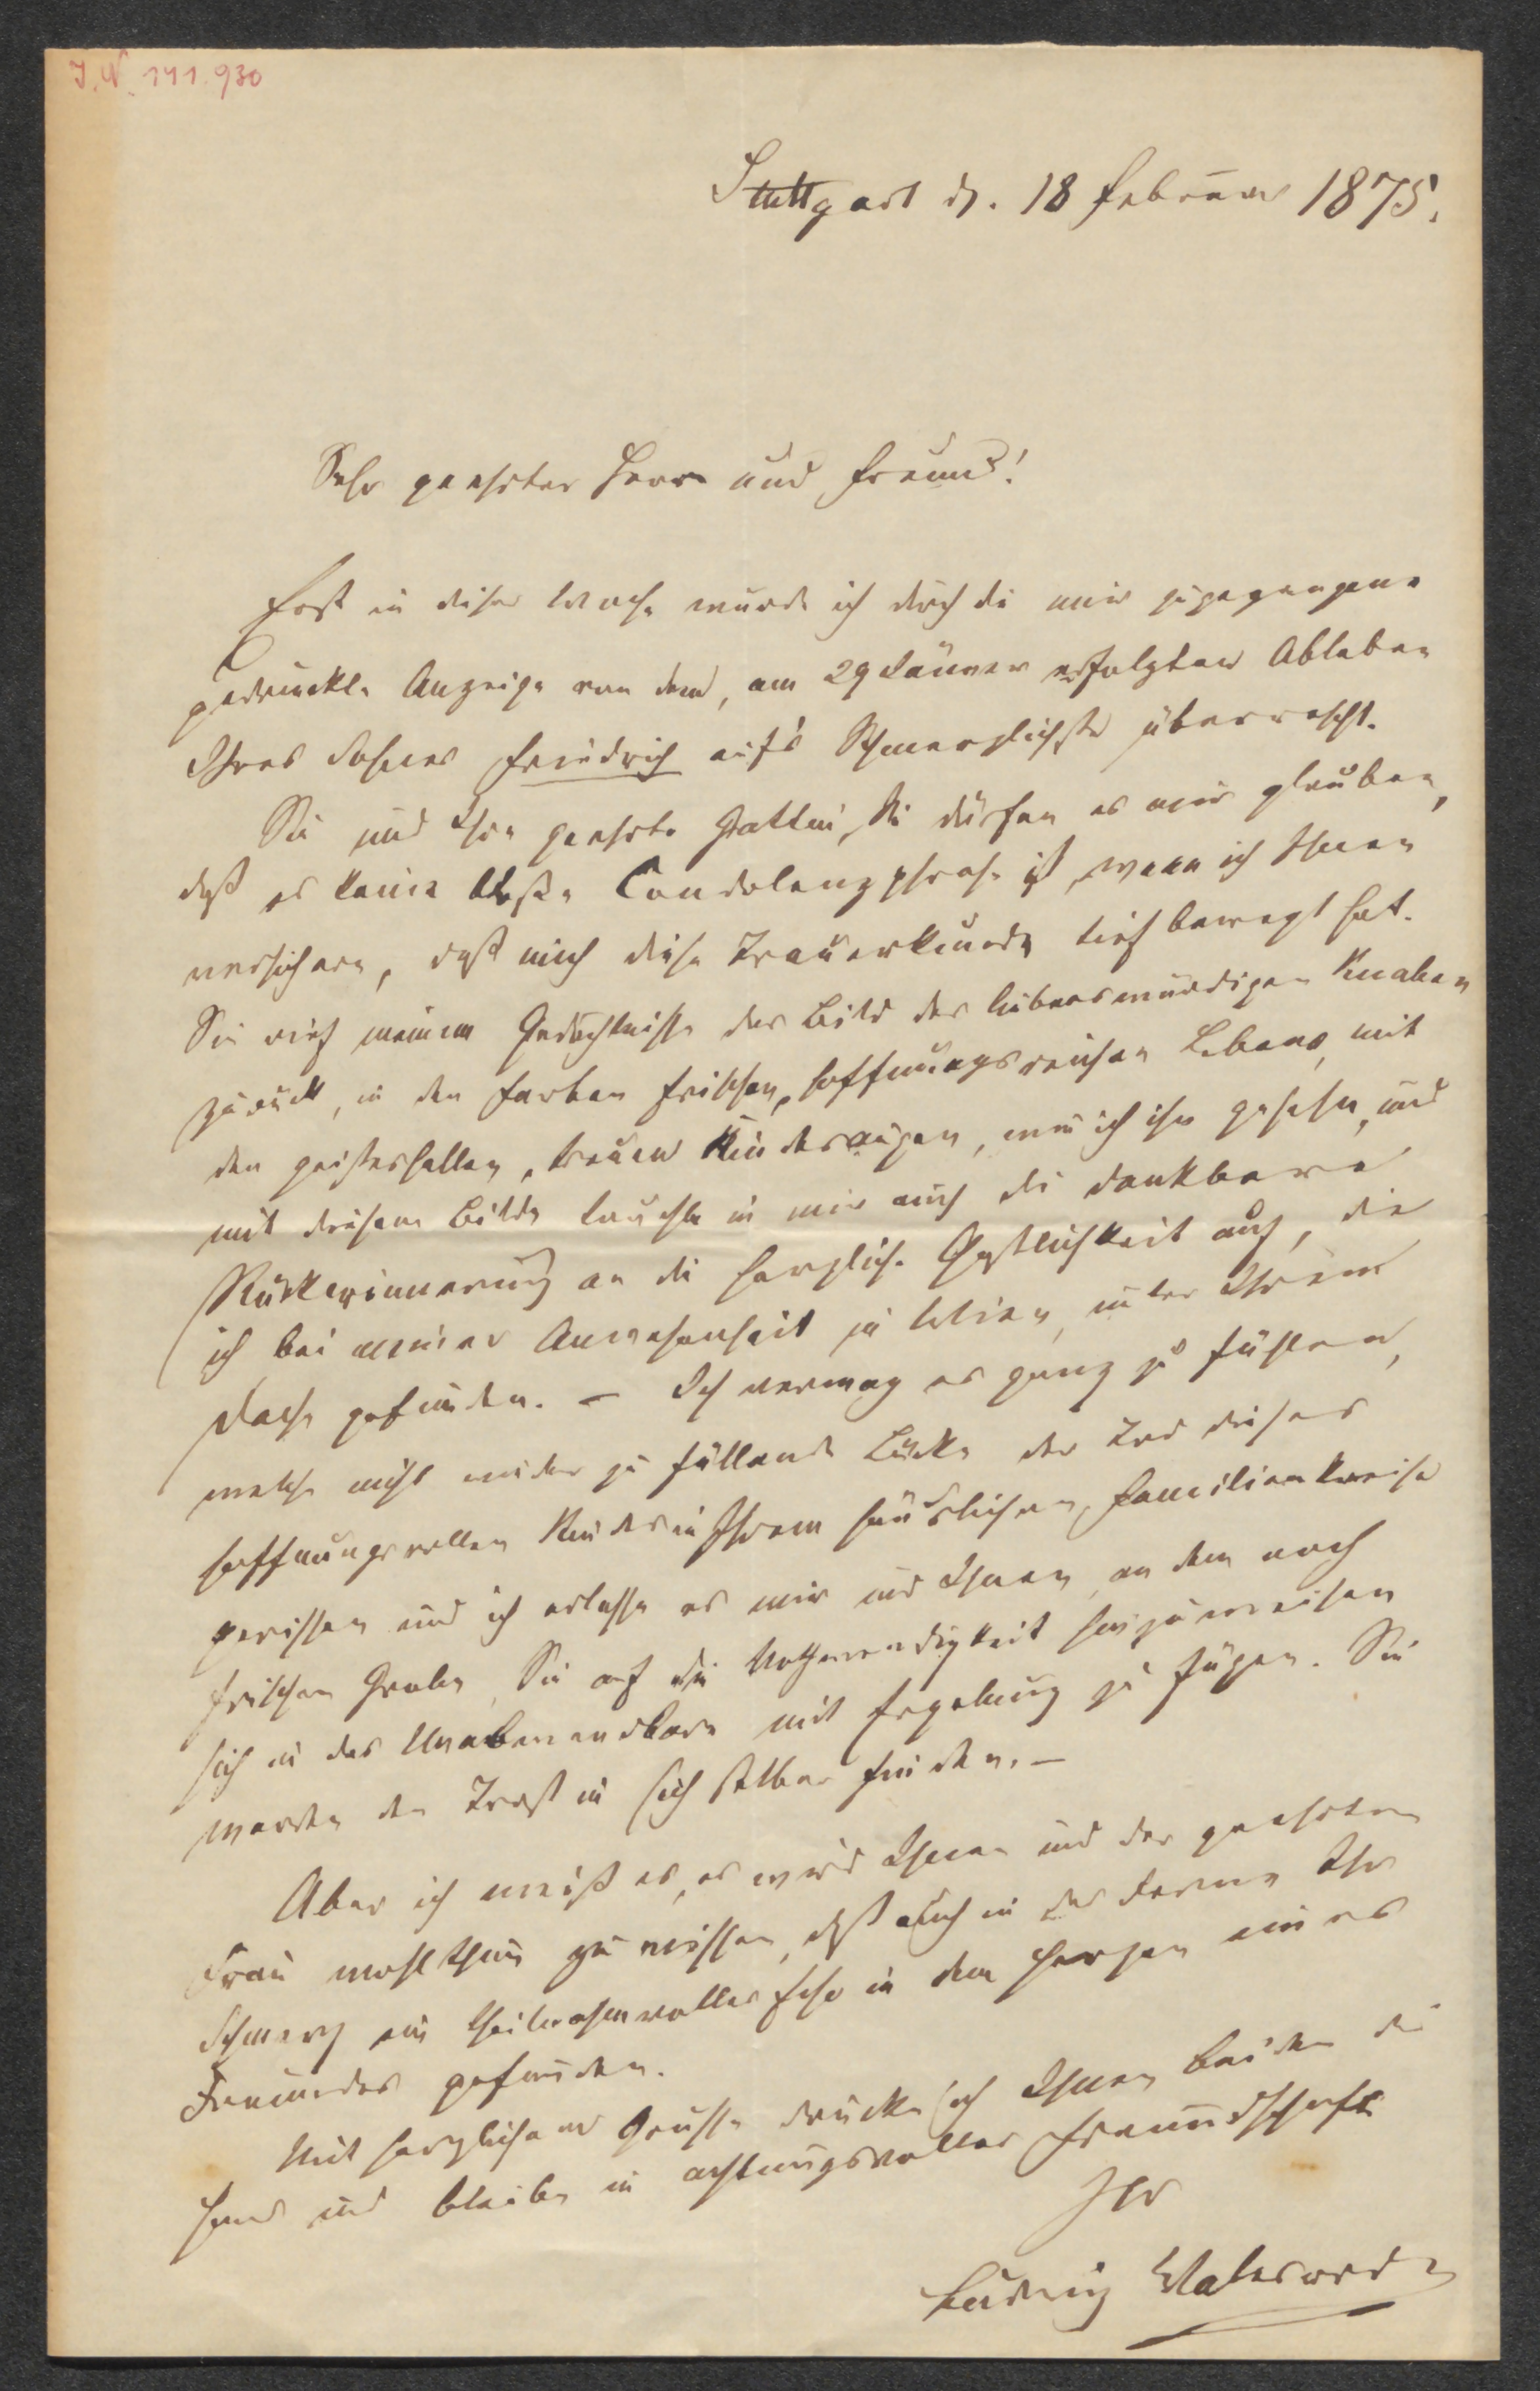 J. N. 141.930
Stuttgart d. 18 Februar 1875.
Sehr geehrter Herr und Freund!
Erst in dieser Woche wurde ich durch die mir zugegangene
gedruckte Anzeige von dem, am 29 Jänner erfolgten Ableben
Ihres Sohnes Friedrich auf's Schmerzlichste überrascht.
Sie und Ihre geehrte Gattin, Sie dürfen es mir glauben,
daß es keine bloße Condolenzphrase ist, wenn ich Ihnen
versichere, daß mich diese Trauerkunde tief bewegt hat.
Sie rief meinem Gedächtnisse das Bild des liebenswürdigen Knaben
zurück, in den Farben frischen, hoffnungsreichen Lebens, mit
den geisteshellen, treuen Kindesaugen, wie ich ihn gesehen, und
mit diesem Bilde tauchte in mir auch die dankbare
Rückerinnerung an die herzliche Gastlichkeit auf, die
ich bei meiner Anwesenheit in Wien, unter Ihrem
Dache gefunden. – Ich vermag es ganz zu fühlen,
welche nicht wieder zu füllende Lücke der Tod dieses
hoffnungsvollen Kindes in Ihrem häuslichen Familienkreise
gerissen und ich erlasse es mir und Ihnen, an dem noch
frischen Grabe, Sie auf die Nothwendigkeit hinzuweisen
sich in das Unabwendbare mit Ergebung zu fügen. Sie
werden den Trost in sich selber finden. –
Aber ich weiß es, es wird Ihnen und der geehrten
Frau wohlthun zu wissen, daß auch in der Ferne Ihr
Schmerz ein theilnahmvolles Echo in dem Herzen eines
Freundes gefunden.
Mit herzlichem Gruße drücke ich Ihnen beiden die
Hand und bleibe in achtungsvoller Freundschaft
Ihr
Ludwig Walesrode